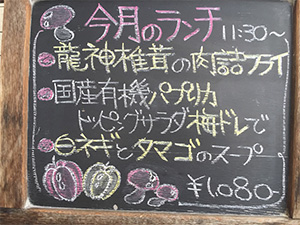 今月のランチ 11:30〜
龍神椎茸の肉詰フライ
国産有機パプリカ
トッピングサラダ梅ドレで
白ネギとタマゴのスープ
¥1,080-